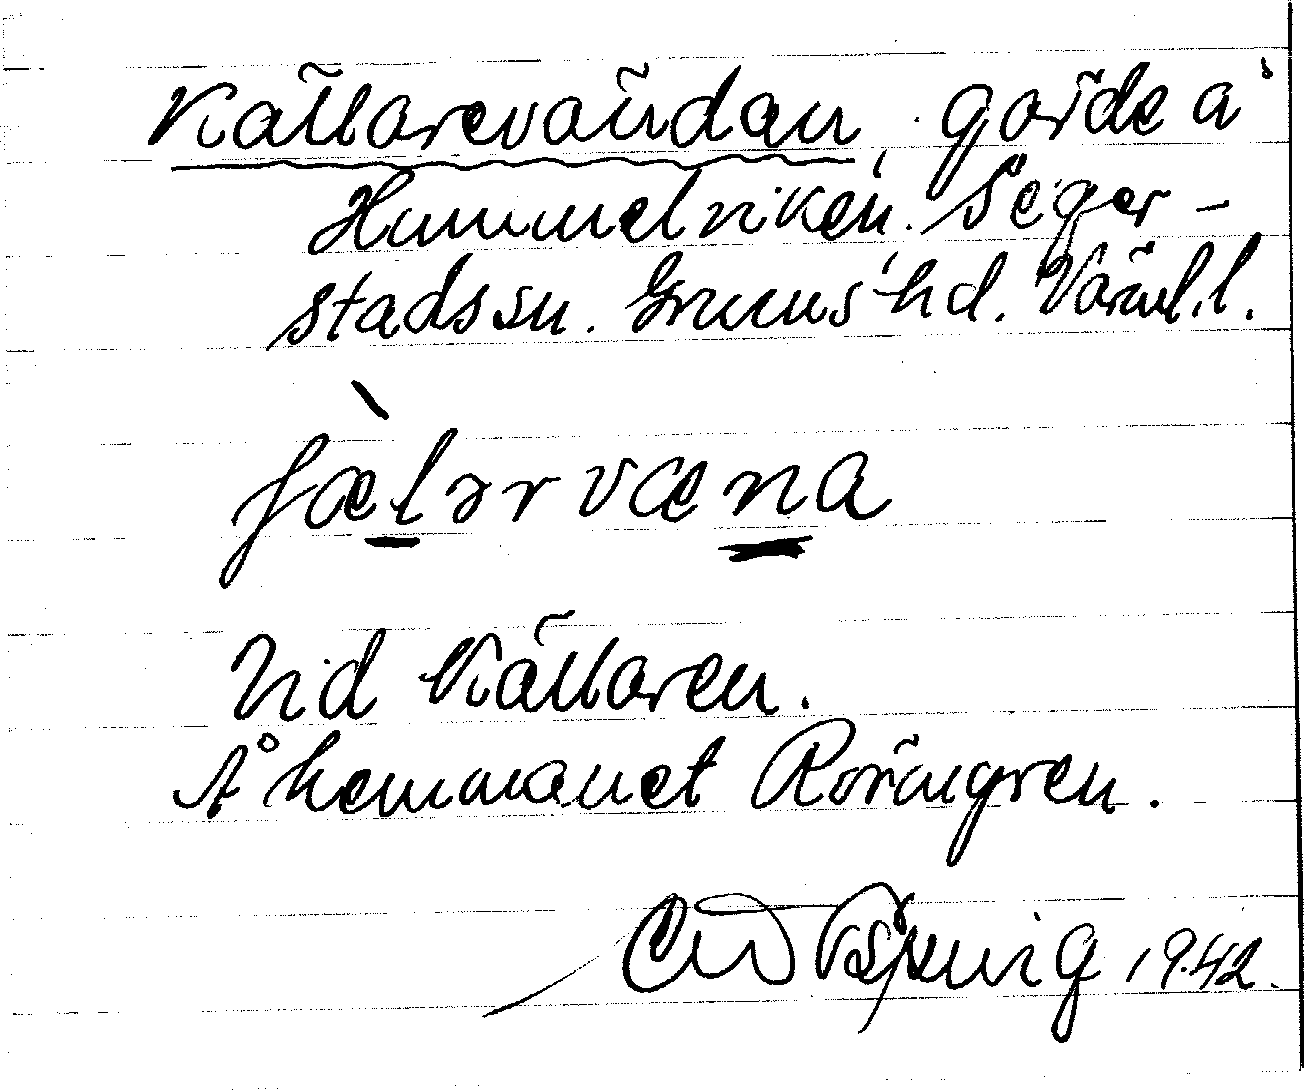 Källarevändan, gärde å
Hummelviken. Seger-
stads sn. Grums hd. Värml. l.
fælərvæna
Vid Källaren.
Å hemmanet Rörängren.
1942.